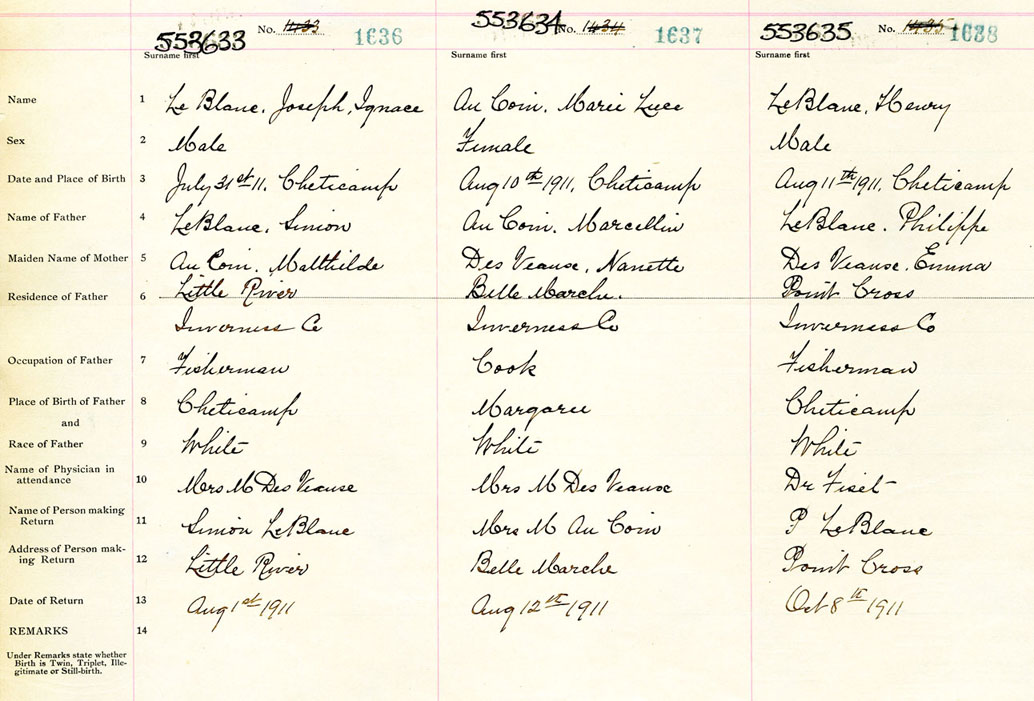 553633 No. 1433 1636 553634 No. 1434 1637 553635 No. 1435 1638
Surname first Surname first Surname first
Name 1 Le Blanc, Joseph, Ignace Au Coin, Marie Luce LeBlanc, Henry
Sex 2 Male Female Male
Date and Place of Birth 3 July 31st 11. Cheticamp Aug 10th 1911, Cheticamp Aug 11th 1911, Cheticamp
Name of Father 4 LeBlanc, Simon Au Coin. Marcellin LeBlanc. Philippe
Maiden Name of Mother 5 Au Coin. Malthilde Des Veause, Nanette Des Veause. Emma
Residence of Father 6 Little River Belle Marche. Point Cross
Inverness Co Inverness Co Inverness Co
Occupation of Father 7 Fisherman Cook Fisherman
Place of Birth of Father 8 Cheticamp Margaree Cheticamp
and
Race of Father 9 White White White
Name of Physician in
attendance 10 Mrs M Des Veause Mrs M Des Veause Dr Fiset
Name of Person making
Return 11 Simon LeBlanc Mrs M Au Coin P LeBlanc
Address of Person mak-
ing Return 12 Little River Belle Marche Point Cross
Date of Return 13 Aug 1st 1911 Aug 12th 1911 Oct 8th 1911
REMARKS 14
Under Remarks state whether
Birth is Twin, Triplet, Ille-
gitimate or Still-birth.